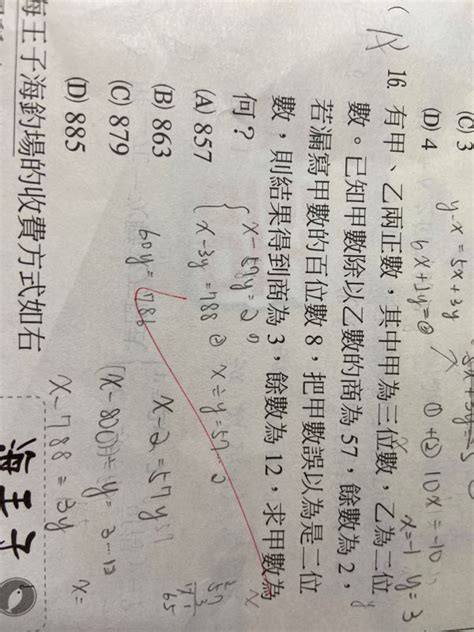 (C) 3
y-x = 5x+3y
(D) 4
①+② 10x = -10
x=-1, y=3
(A) 16. 有甲、乙兩正數，其中甲為三位數，乙為二位
數。已知甲數除以乙數的商為 57，餘數為 2，
若漏寫甲數的百位數 8，把甲數誤以為是二位
數，則結果得到商為 3，餘數為 12，求甲數為
何？
x-57y=2
(A) 857
x-3y=788 ② x÷y=57
(B) 863
60y=786 x-2=57y
(C) 879
(x-800)÷y=3…12
(D) 885
x-788=3y x=
海王子海釣場的收費方式如右
海王子